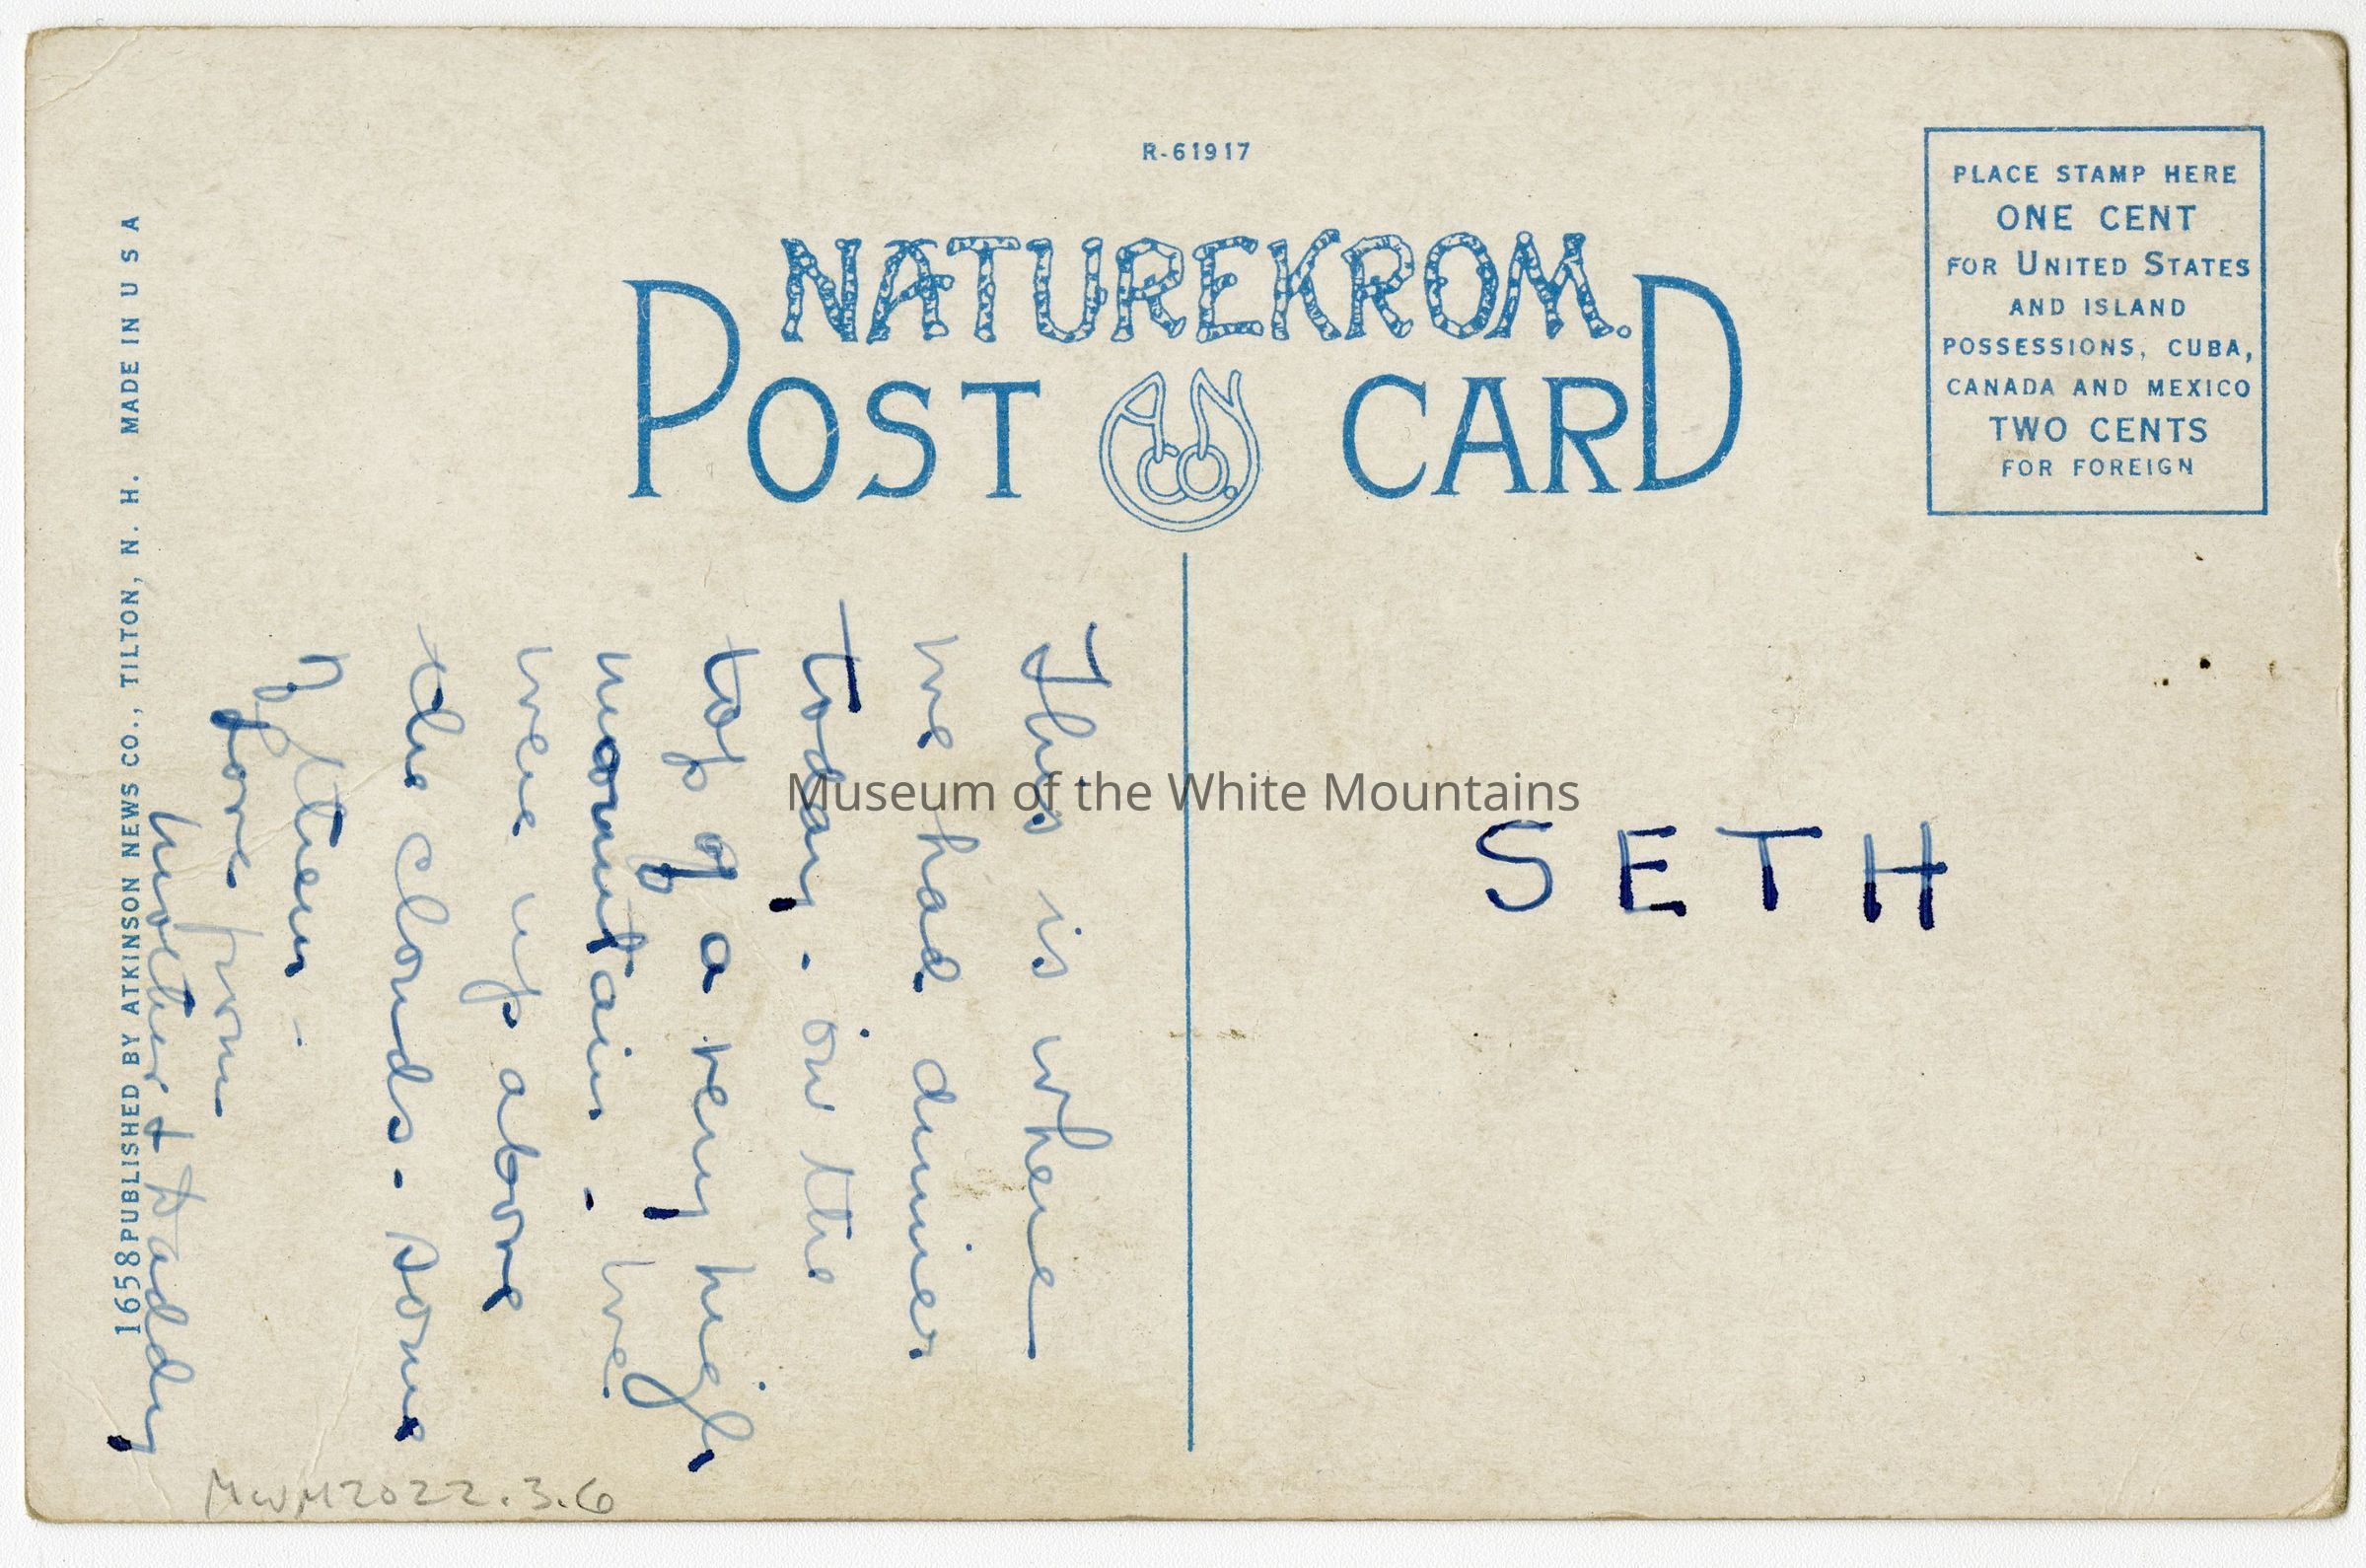 R-61917
NATUREKROM.
POST CARD
A N CO.
PLACE STAMP HERE
ONE CENT
FOR UNITED STATES
AND ISLAND
POSSESSIONS, CUBA,
CANADA AND MEXICO
TWO CENTS
FOR FOREIGN
1658 PUBLISHED BY ATKINSON NEWS CO., TILTON, N. H. MADE IN U S A
This is where
we had dinner
today - on the
top of a very high
mountain - We
were up above
the clouds - some
of them -
Love from
Mother + Daddy
SETH
Museum of the White Mountains
MWM2022.3.6